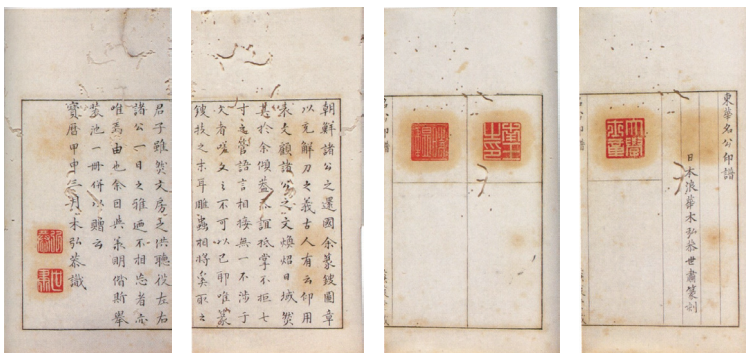 東華名公印譜
日本浪華木弘恭世肅篆刻
南玉之印
朝鮮諸公之還國余篆鋟圖章
以充解刀之義古人有云印用
表文顧諸公之文煥炤日域然
其於余傾蓋之誼抵掌不拒七
寸之管語言相接無一不涉于
文者嗟文之不可以已耶唯篆
鋟技之末耳雕蟲相將奚取之
君子雖然文房之供聽役左右
諸公一日之雅迺不相忘者亦
唯焉由也余因與承明偕斯舉
裝池一冊併以贈云
寶曆甲申三月木弘恭識
弘恭
世肅